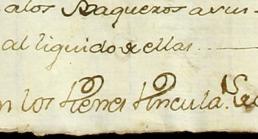 alos Baqueros a rus-
al liquido de ellas..
n los tierras tincula.